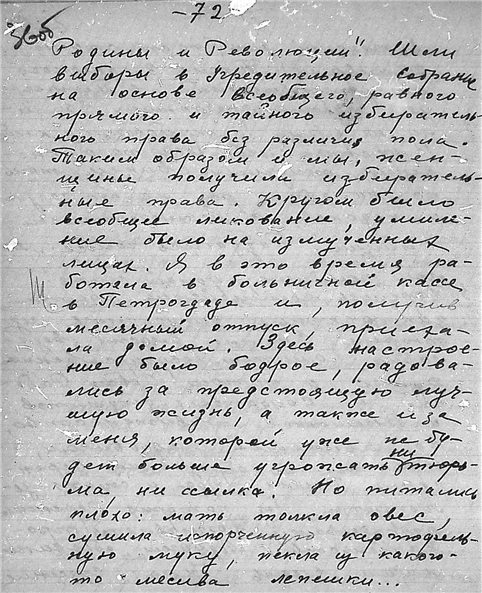 -72
Родины и Революции". Шли
выборы в Учредительное собрание
на основе всеобщего, равного
прямого и тайного избиратель-
ного права без различия пола.
Таким образом и мы, жен-
щины получили избиратель-
ные права. Кругом было
всеобщее ликование, умиле-
ние было на измученных
лицах. Я в это время ра-
ботала в больничной кассе
в Петрогдаде и, получив
месячный отпуск, приеха-
ла домой. Здесь настрое-
ние было бодрое, радова-
лись за предстоящую луч-
шую жизнь, а также и за
меня, которой уже не бу-
дет больше угрожать ни тюрь-
ма, ни ссылка. Но питались
плохо: мать толкла овес,
сушила испорченную картофель-
ную муку, пекла из какого-
то месива лепешки...